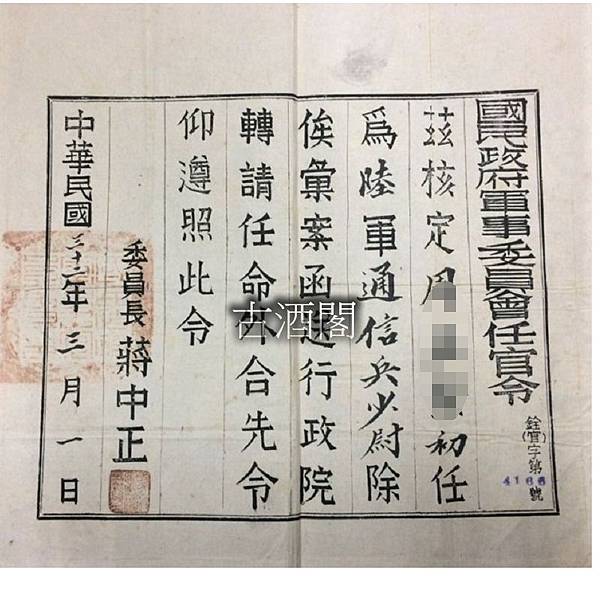 國民政府軍事委員會任官令
銓(官)字第 號
茲核定 初任
爲陸軍通信兵少尉除
俟彙案函送行政院
轉請任命外合先令
仰遵照此令
委員長 蔣中正
中華民國三十二年三月一日
古酒閣